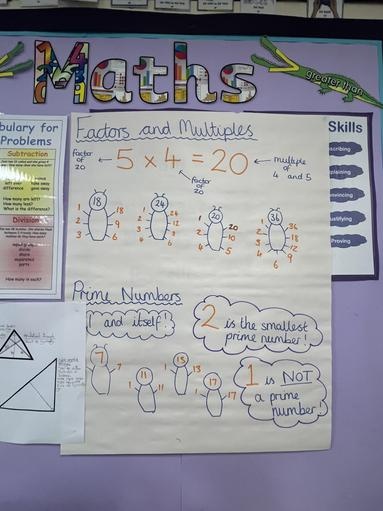 Maths
greater than
Factors and Multiples
factor of 20
5 x 4 = 20
multiple of 4 and 5
factor of 20
18
1 18
2 9
3 6
24
1 24
2 12
3
4 6
20
1 20
2 10
4 5
36
1 36
2 18
3 12
4 9
6
Prime Numbers
1 and itself!
2 is the smallest prime number!
7
7
11
1 11
13
1 13
17
1 17
1 is NOT a prime number!
bulary for
Problems
Subtraction
difference
How many are left?
How many less?
What is the difference?
Division
share
How many in each?
Skills
scribing
plaining
nvincing
ustifying
Proving